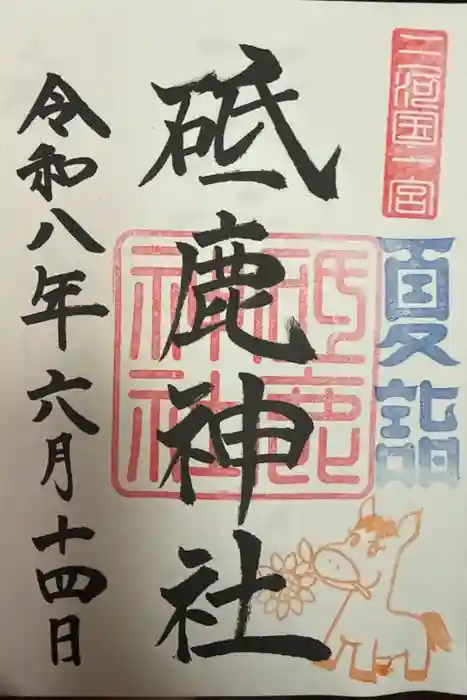 三河国一宮
夏詣
砥鹿神社
砥鹿神社
令和八年六月十四日